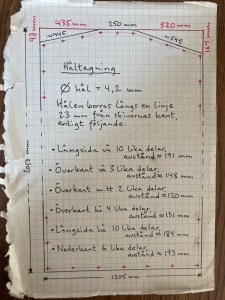 435 mm 250 mm 520 mm
93 mm
≈445
≈545
164 mm
Håltagning
Ø hål = 4,2 mm
Hålen borras längs en linje
23 mm från skivornas kant,
enligt följande:
• Långsida vä 10 lika delar,
avstånd ≈ 191 mm
• Överkant vä 3 lika delar,
avstånd ≈ 148 mm
• Överkant mitt 2 lika delar,
avstånd ≈ 120 mm
• Överkant hö 4 lika delar,
avstånd ≈ 131 mm
• Långsida hö 10 lika delar,
avstånd ≈ 184 mm
• Nederkant 6 lika delar,
avstånd ≈ 193 mm
1205 mm